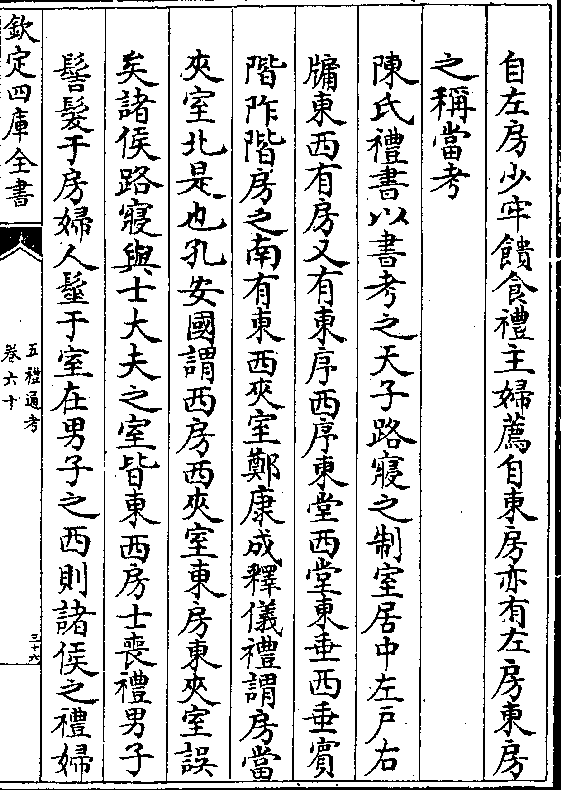 自左房少牢饋食禮主婦薦自東房亦有左房東房
之稱當考
陳氏禮書以書考之天子路寢之制室居中左戸右
牖東西有房又有東序西序東堂西堂東垂西垂賓
階阼階房之南有東西夾室鄭康成釋儀禮謂房當
夾室北是也孔安國謂西房西夾室東房東夾室誤
矣諸侯路寢與士大夫之室皆東西房士喪禮男子
髻髮于房婦人髽于室在男子之西則諸侯之禮婦
欽定四庫全書
五禮通考
卷六十
三十六